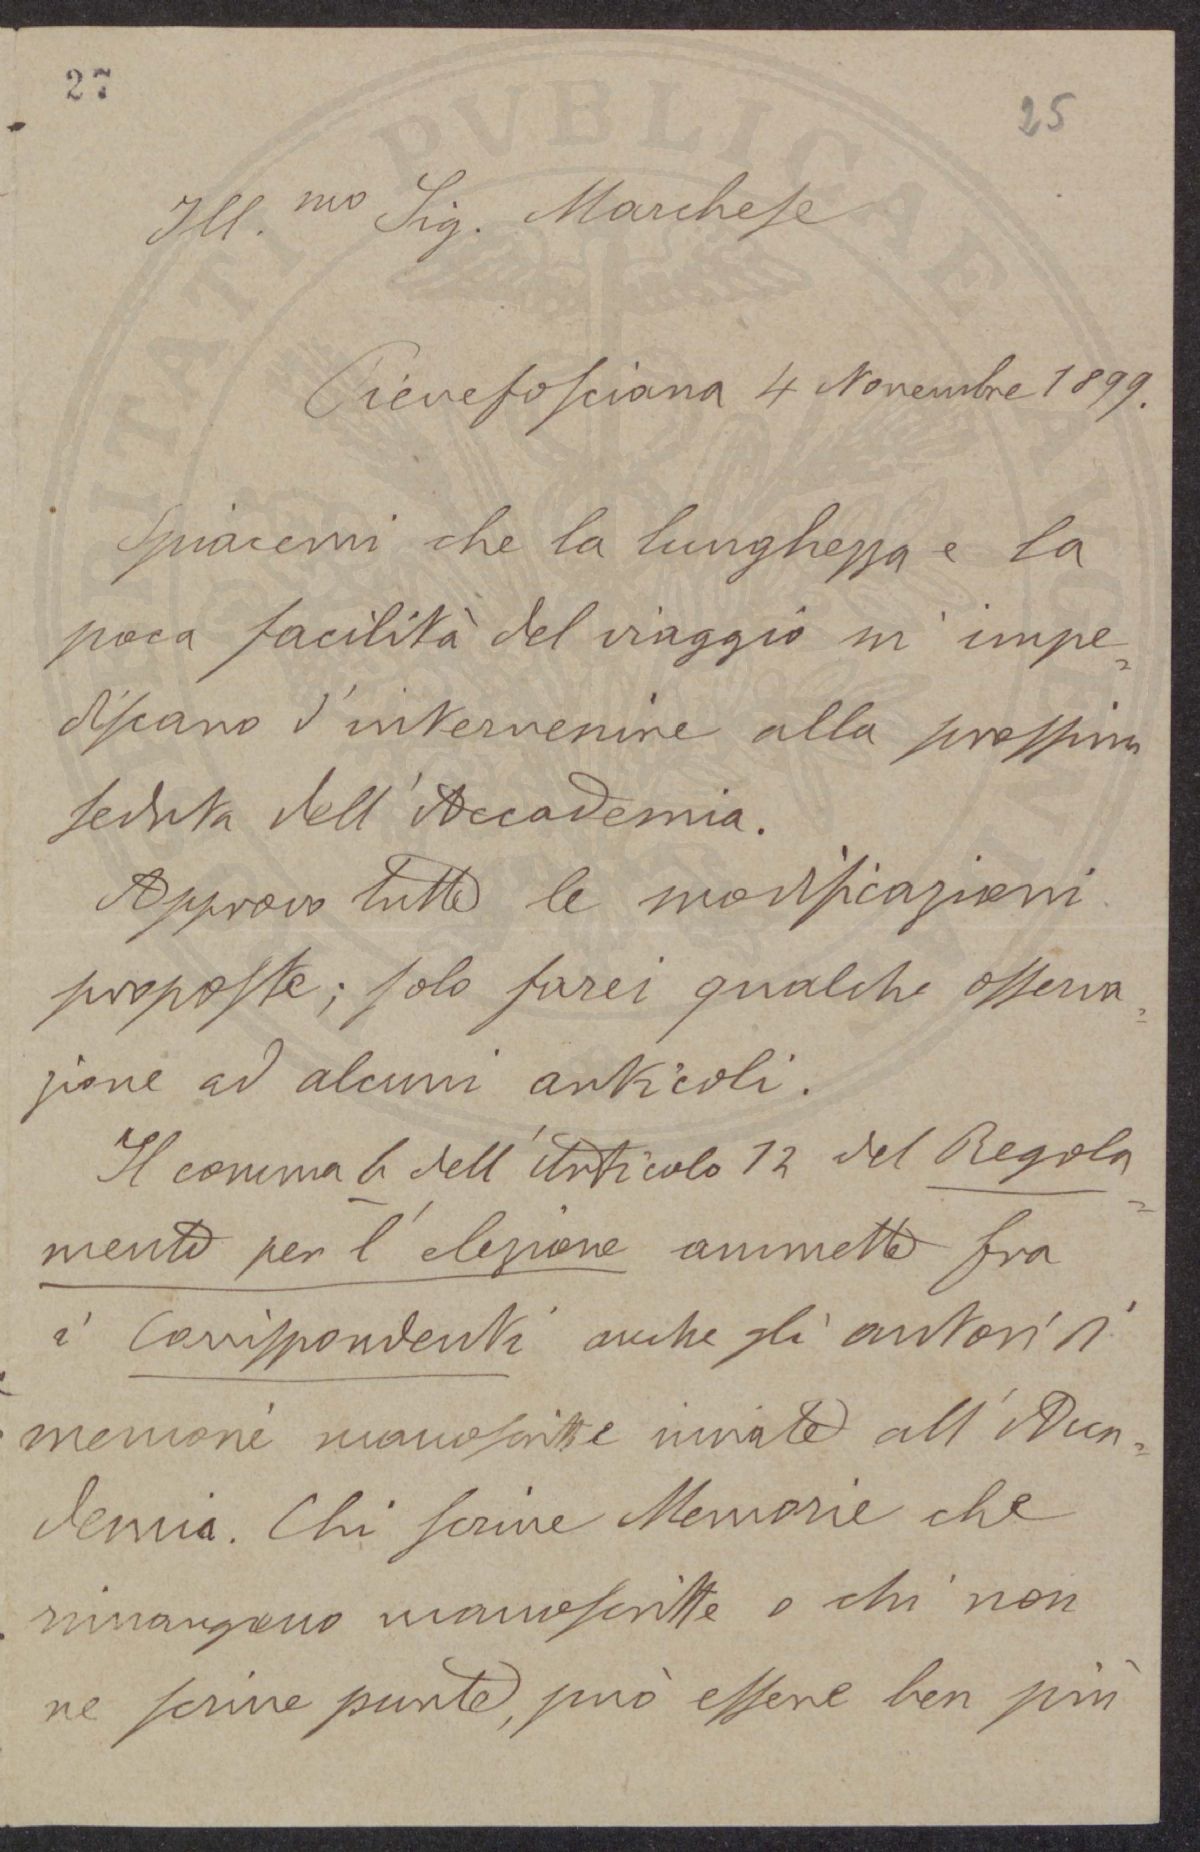 27
25
Ill.mo Sig. Marchese
Pievefosciana 4 Novembre 1899.
Spiacemi che la lunghezza e la
poca facilità del viaggio m'impe=
discano d'intervenire alla prossima
seduta dell'Accademia.
Approvo tutte le modificazioni
proposte; solo farei qualche osserva=
zione ad alcuni articoli.
Il comma b dell'Articolo 12 del Regola=
mento per l'elezione ammette fra
i Corrispondenti anche gli autori di
memorie manoscritte inviate all'Acca=
demia. Chi scrive Memorie che
rimangono manoscritte o chi non
ne scrive punte, può essere ben più